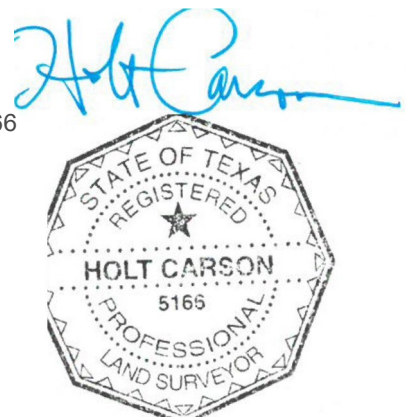 Holt Carson
66
STATE OF TEXAS
REGISTERED
HOLT CARSON
5166
PROFESSIONAL
LAND SURVEYOR